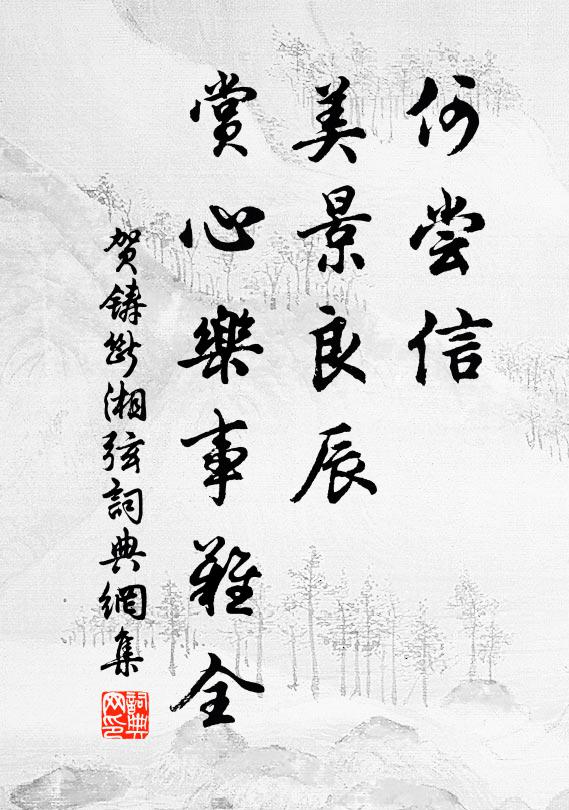 何尝信
美景良辰
賞心樂事難全
贺鑄断湘弦詞典網集
詞典网印